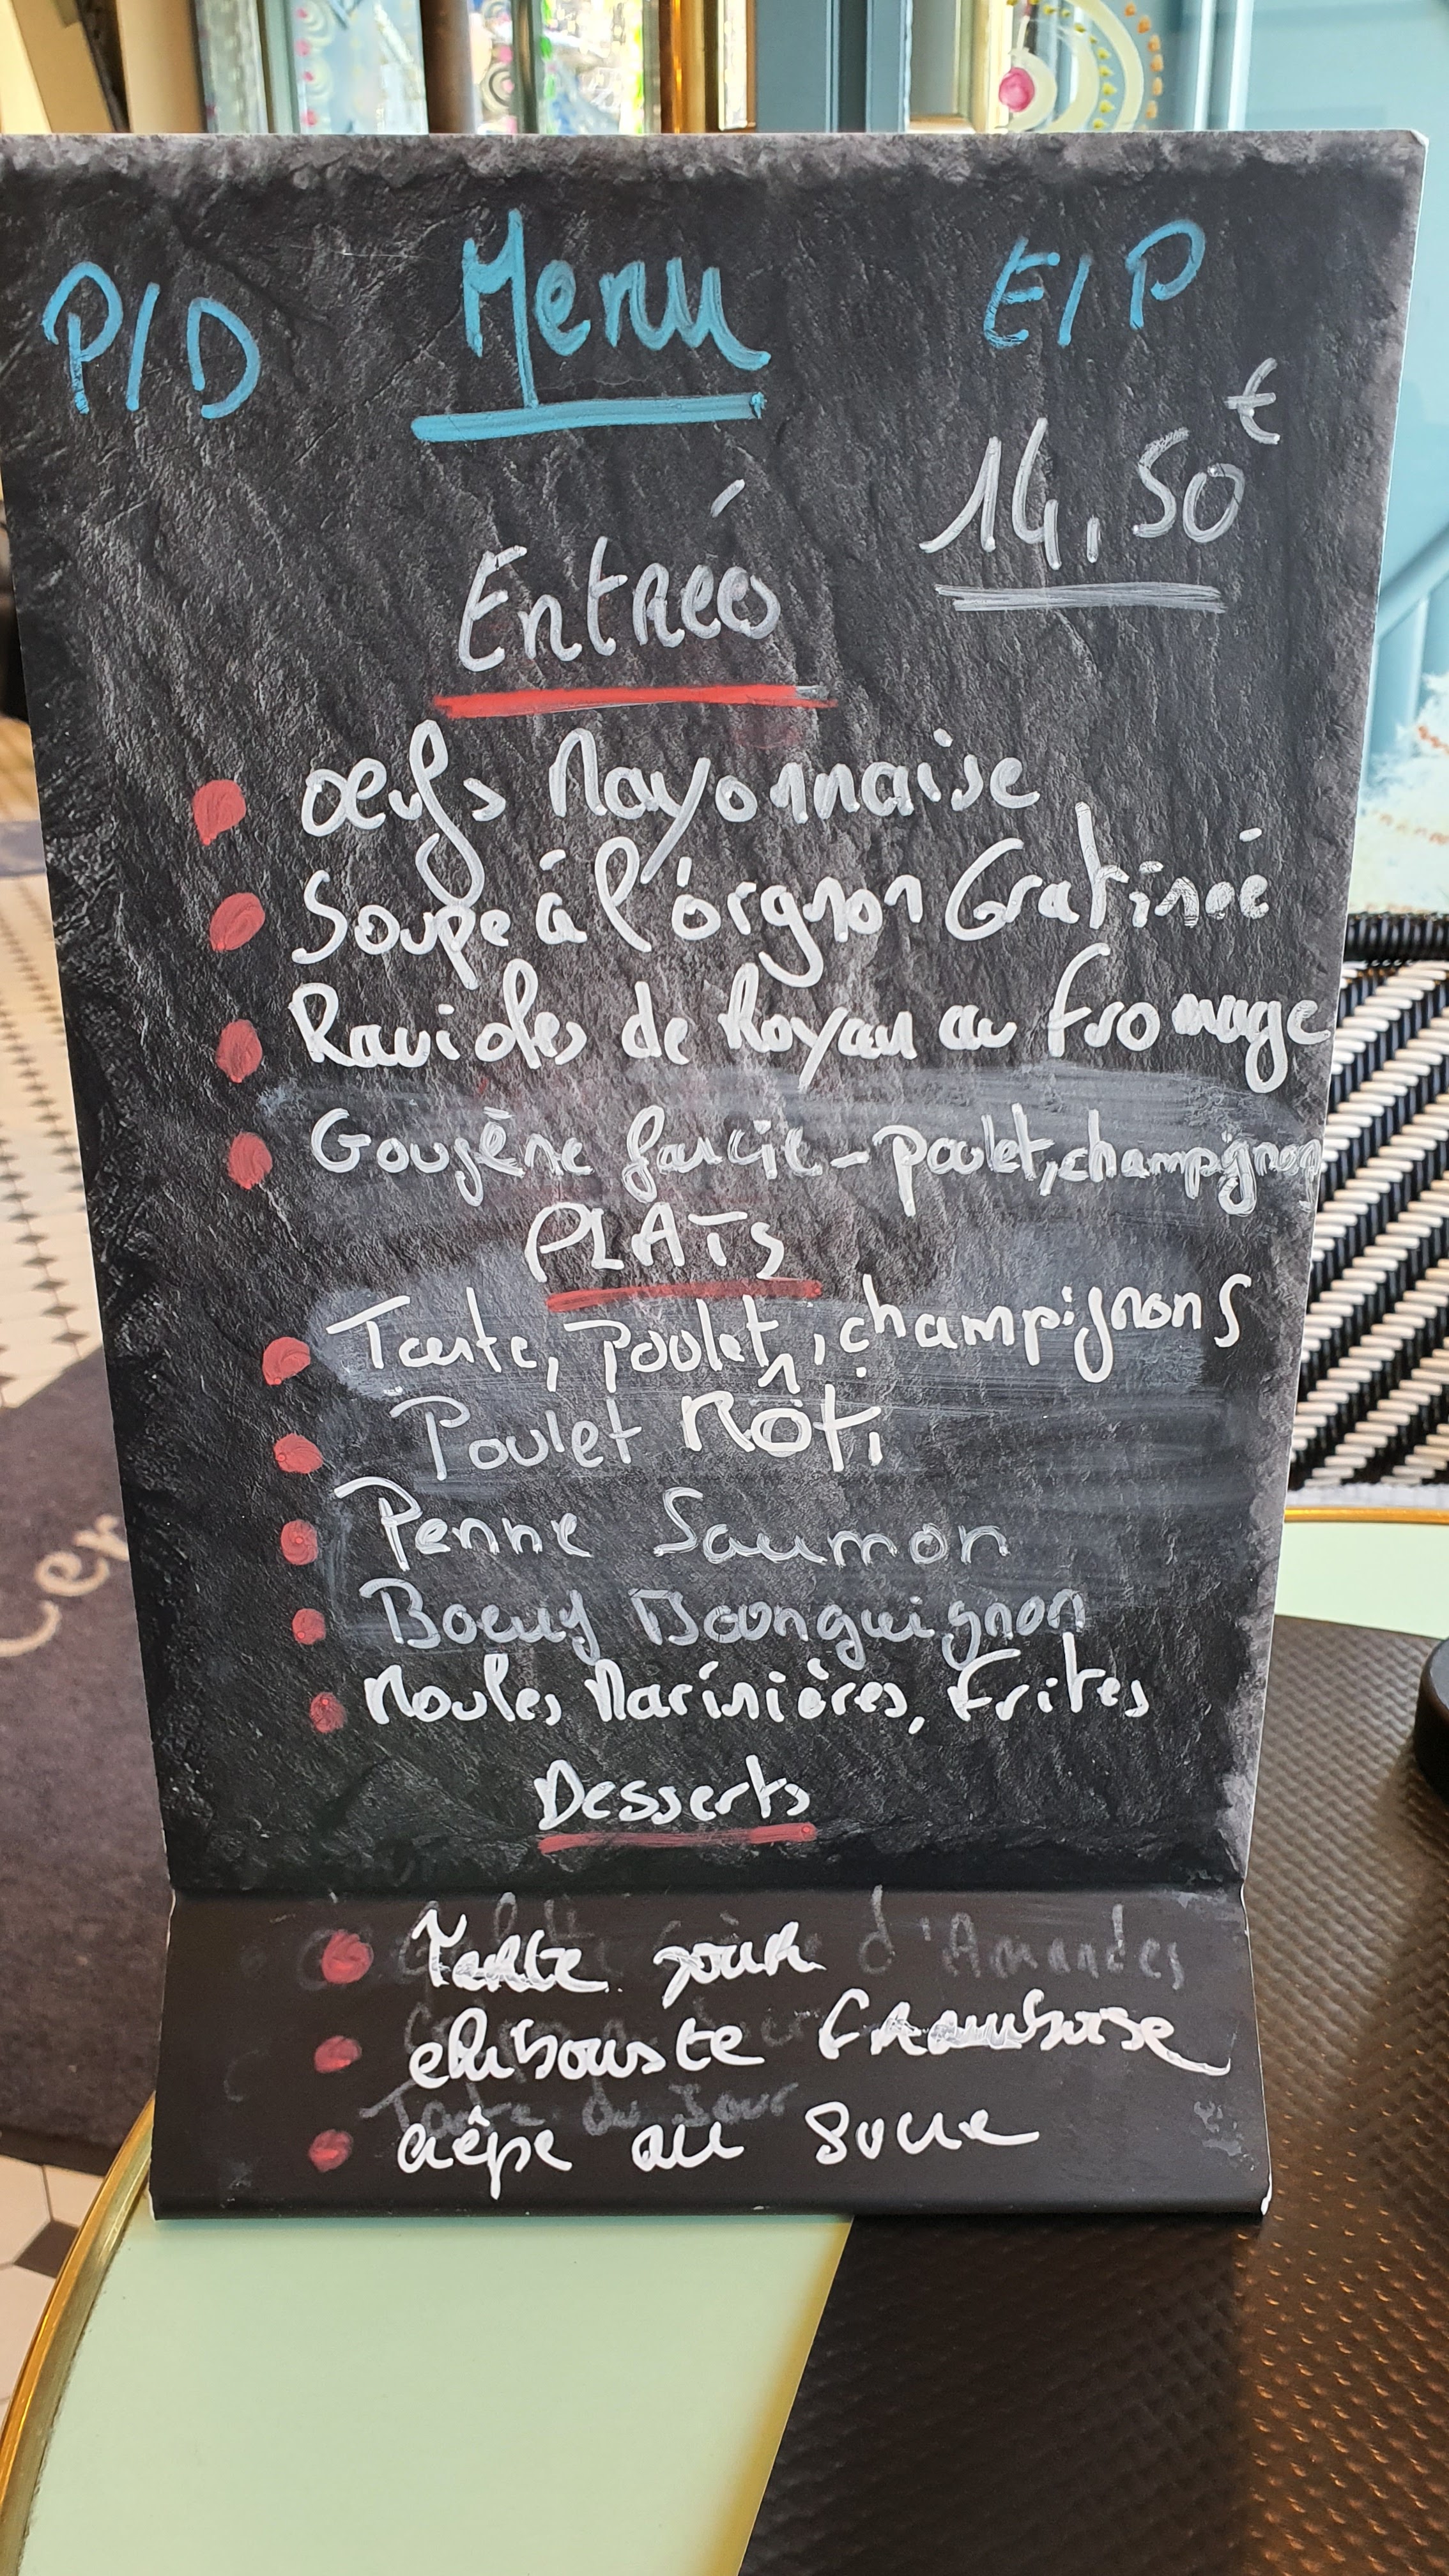 P/D Menu E/P
14,50€
Entreés
œufs Mayonnaise
Soupe à l'oignon Gratinée
Ravioles de Royan au fromage
Goujène farcie - poulet, champignon
PLATS
Tourte, Poulet, champignons
Poulet Rôti
Penne Saumon
Boeuf Bourguignon
Moules Marinières, Frites
Desserts
Tarte jour
d'Amandes
chibouste Framboise
Tarte du Jour
crêpe au Sucre